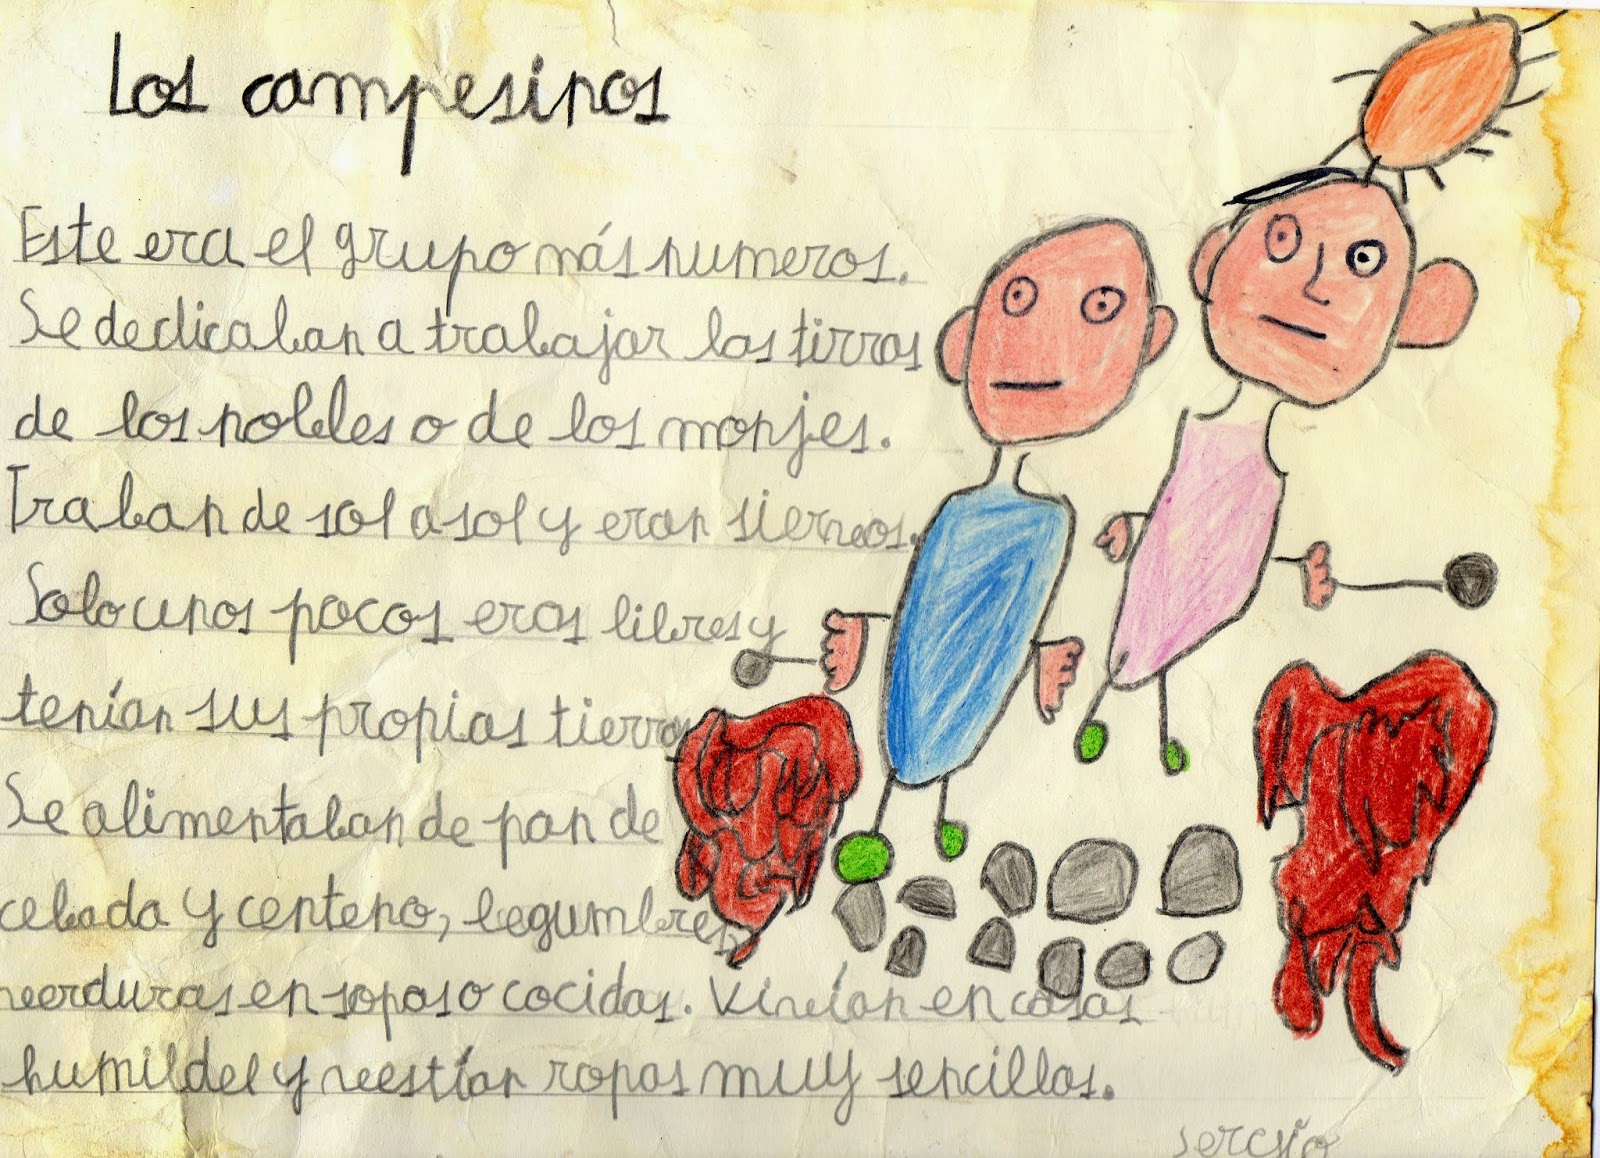 Los campesinos
Este era el grupo más numeros.
Se dedicaban a trabajar las tirras
de los nobles o de los monjes.
Traban de sol a sol y eran siervos.
Solo unos pocos eras libres y
tenían sus propias tierras
Se alimentaban de pan de
cebada y centeno, legumbres,
verduras en sopas o cocidas. Vivían en casas
humildel y vestían ropas muy sencillas.
Sergio